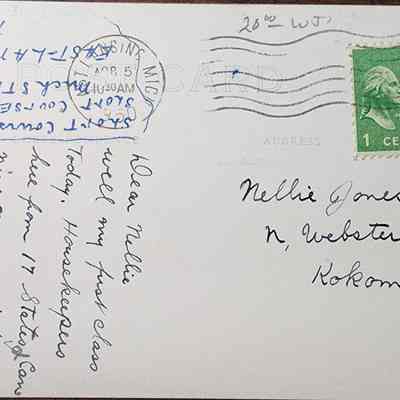 20⁰⁰ WJ
LANSING, MICH
APR 5
10 30 AM
CARD
ADDRESS
1 CE
SHORT COURS
SHORT COURSE
MICH ST
EAST LA
Dear Nellie
Well my first class
Today. Housekeepers
here from 17 States & Can
Nellie Jones
N, Webster
Kokom